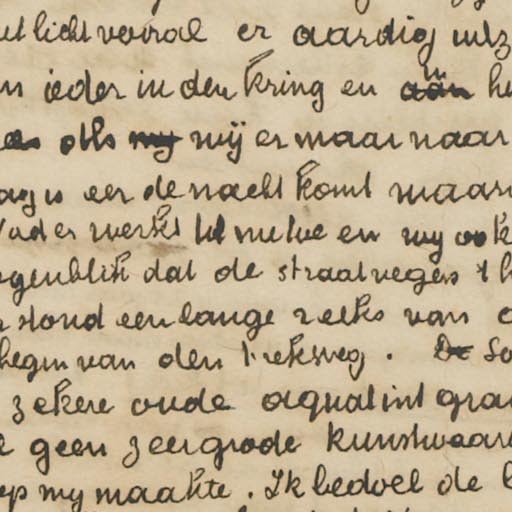 licht vooral er aardig uitz
ieder in den kring en aan he
als my wij er maar naar
ag is eer de nacht komt maar
Vader werkt tot mutue en wy ook
ogenblik dat de straatvegers 't
stond een lange reeks van
begin van den trekweg. De
zekere oude aquatint gra
geen zeergrode kunstwaar
op my maakte. Ik bedoel de